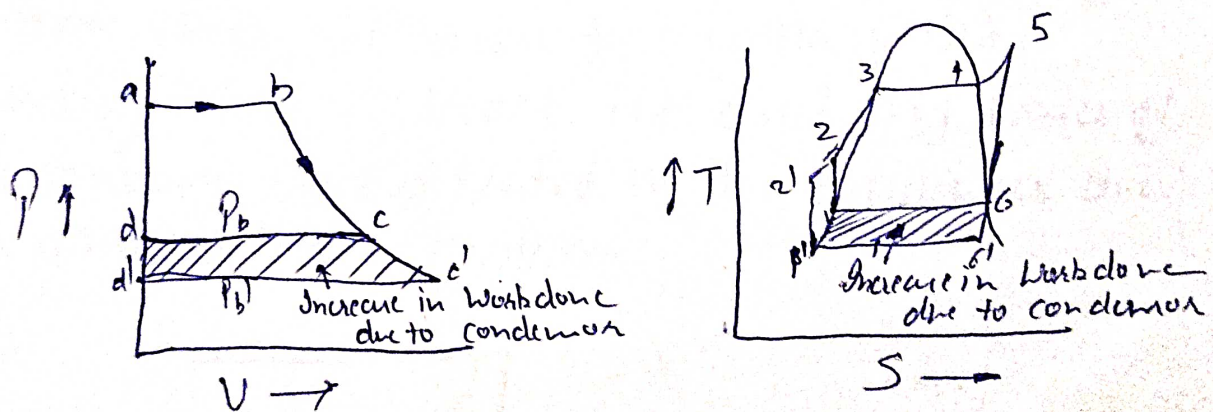 a
b
P ↑
d
P_b
c
d'
P_b'
c'
Increase in Workdone
due to condensor
V →
5
3
2
↑ T
2'
6
6'
Increase in Workdone
due to condensor
S →